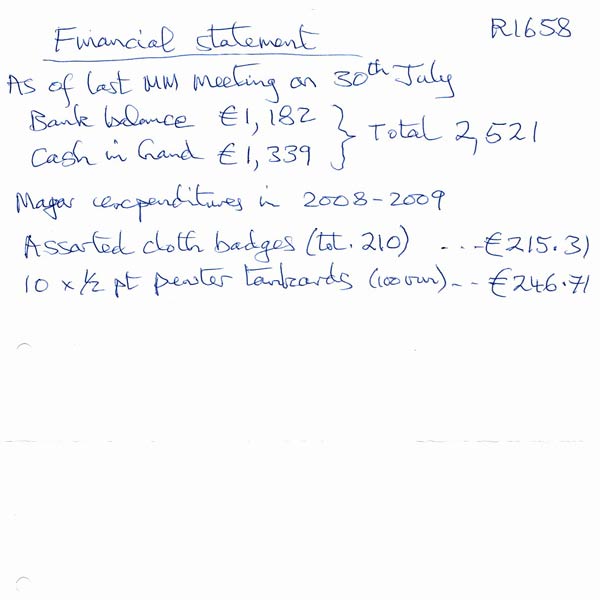 R1658
Financial statement
As of last MM Meeting on 30th July
Bank balance €1,182
Cash in hand €1,339
} Total 2,521
Major expenditures in 2008-2009
Assorted cloth badges (tot. 210) ...€215.31
10 x 1/2 pt pewter tankards (100 run)... €246.71